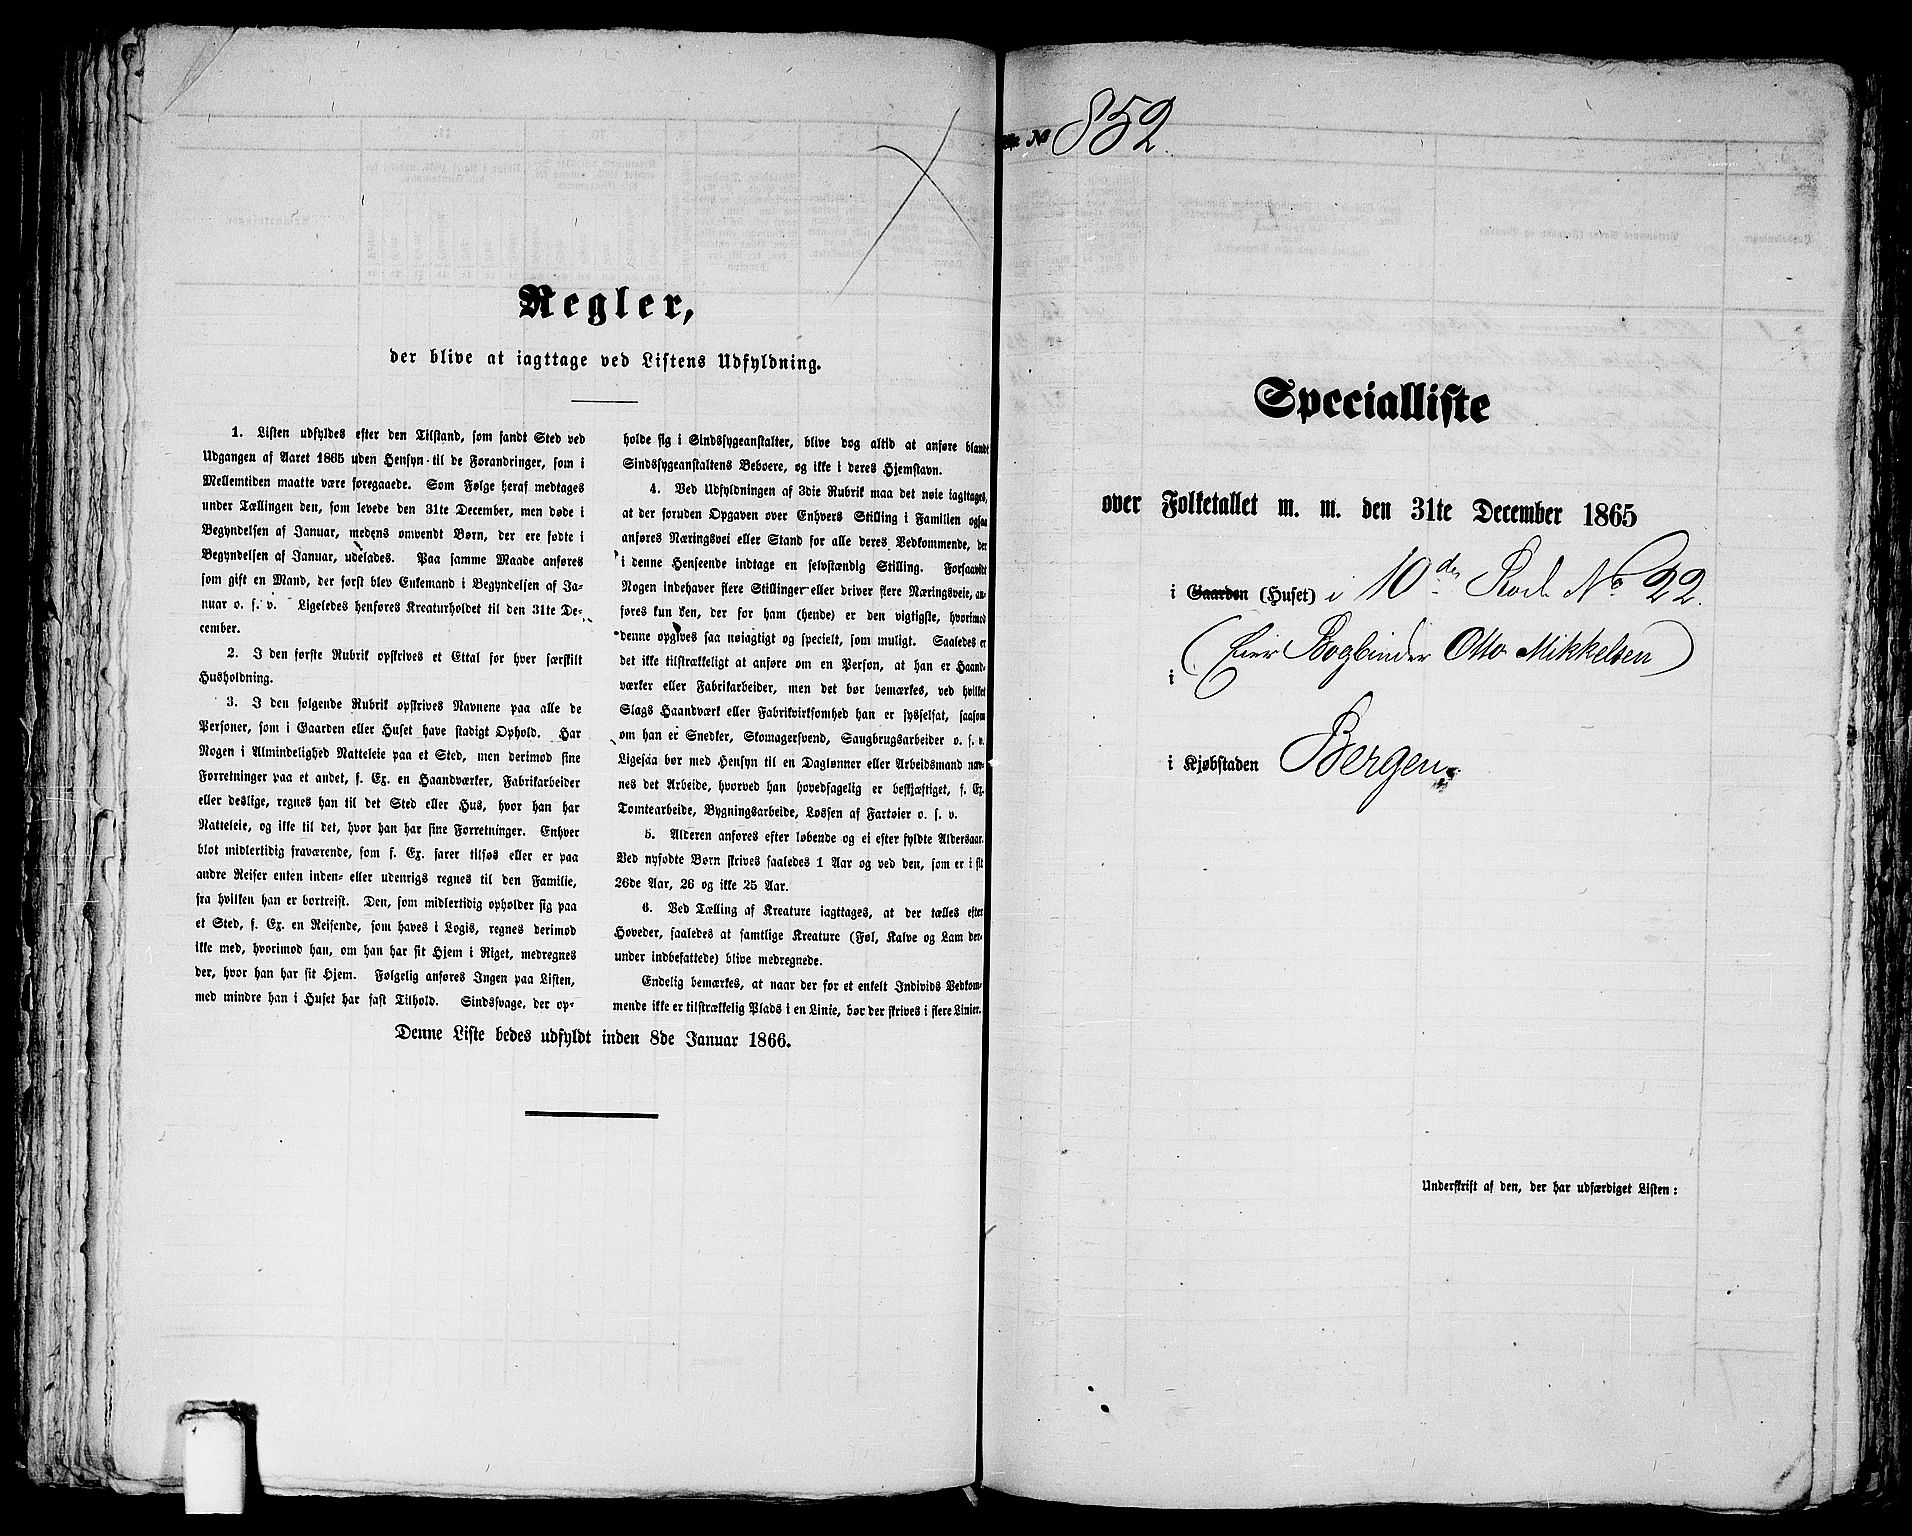 Regler,
der blive at iagttage ved Listens Udfyldning.
1. Listen udfyldes efter den Tilstand, som fandt Sted ved
Udgangen af Aaret 1865 uden Hensyn til de Forandringer, som i
Mellemtiden maatte være foregaaede. Som Følge heraf medtages
under Tællingen den, som levede den 31te December, men døde i
Begyndelsen af Januar, medens omvendt Børn, der ere fødte i
Begyndelsen af Januar, udelades. Paa samme Maade anføres
som gift en Mand, der først blev Enkemand i Begyndelsen af Ja-
nuar o. s. v. Ligeledes henføres Kreaturholdet til den 31te De-
cember.
2. I den første Rubrik opskrives et Ettal for hver særskilt
Husholdning.
3. I den følgende Rubrik opskrives Navnene paa alle de
Personer, som i Gaarden eller Huset have stadigt Ophold. Har
Nogen i Almindelighed Natteleie paa et Sted, men derimod sine
Forretninger paa et andet, f. Ex. en Haandværker, Fabrikarbeider
eller deslige, regnes han til det Sted eller Hus, hvor han har
Natteleie, og ikke til det, hvor han har sine Forretninger. Enhver
blot midlertidig fraværende, som f. Ex. farer tilsøs eller er paa
andre Reiser enten inden- eller udenrigs regnes til den Familie,
fra hvilken han er bortreist. Den, som midlertidig opholder sig paa
et Sted, f. Ex. en Reisende, som haves i Logis, regnes derimod
ikke med, hvorimod han, om han har sit Hjem i Riget, medregnes
der, hvor han har sit Hjem. Følgelig anføres Ingen paa Listen,
med mindre han i Huset har fast Tilhold. Sindssvage, der op-
holde sig i Sindssygeanstalter, blive dog altid at anføre blandt
Sindssygeanstaltens Beboere, og ikke i deres Hjemstavn.
4. Ved Udfyldningen af 3die Rubrik maa det nøie iagttages,
at der foruden Opgaven over Enhvers Stilling i Familien ogsaa
anføres Næringsvei eller Stand for alle deres Vedkommende, der
i denne Henseende indtage en selvstændig Stilling. Forsaavidt
Nogen indehaver flere Stillinger eller driver flere Næringsveie, an-
føres kun den, der for ham (hende) er den vigtigste, hvorimod
denne opgives saa nøiagtigt og specielt, som muligt. Saaledes er
det ikke tilstrækkeligt at anføre om en Person, at han er Haand-
værker eller Fabrikarbeider, men det bør bemærkes, ved hvilket
Slags Haandværk eller Fabrikvirksomhed han er sysselsat, saasom
om han er Snedker, Skomagersvend, Saugbrugsarbeider o. s. v.
Ligesaa bør med Hensyn til en Daglønner eller Arbeidsmand næv-
nes det Arbeide, hvorved han hovedsagelig er beskjæftiget, f. Ex.
Tomtearbeide, Bygningsarbeide, Lossen af Fartøier o. s. v.
5. Alderen anføres efter løbende og ei efter fyldte Aldersaar.
Ved nyfødte Børn skrives saaledes 1 Aar og ved den, som er i sit
26de Aar, 26 og ikke 25 Aar.
6. Ved Tælling af Kreature iagttages, at der tælles efter
Hoveder, saaledes at samtlige Kreature (Føl, Kalve og Lam der-
under indbefattede) blive medregnede.
Endelig bemærkes, at naar der for et enkelt Individs Vedkom-
mende ikke er tilstrækkelig Plads i en Linie, bør der skrives i flere Linier.
Denne Liste bedes udfyldt inden 8de Januar 1866.
No 852.
Specialliste
over Folketallet m. m. den 31te December 1865
i Gaarden (Huset) i 10de Rode No 22.
i (Eier Bogbinder Otto Mikkelsen)
i Kjøbstaden Bergen.
Underskrift af den, der har udfærdiget Listen: